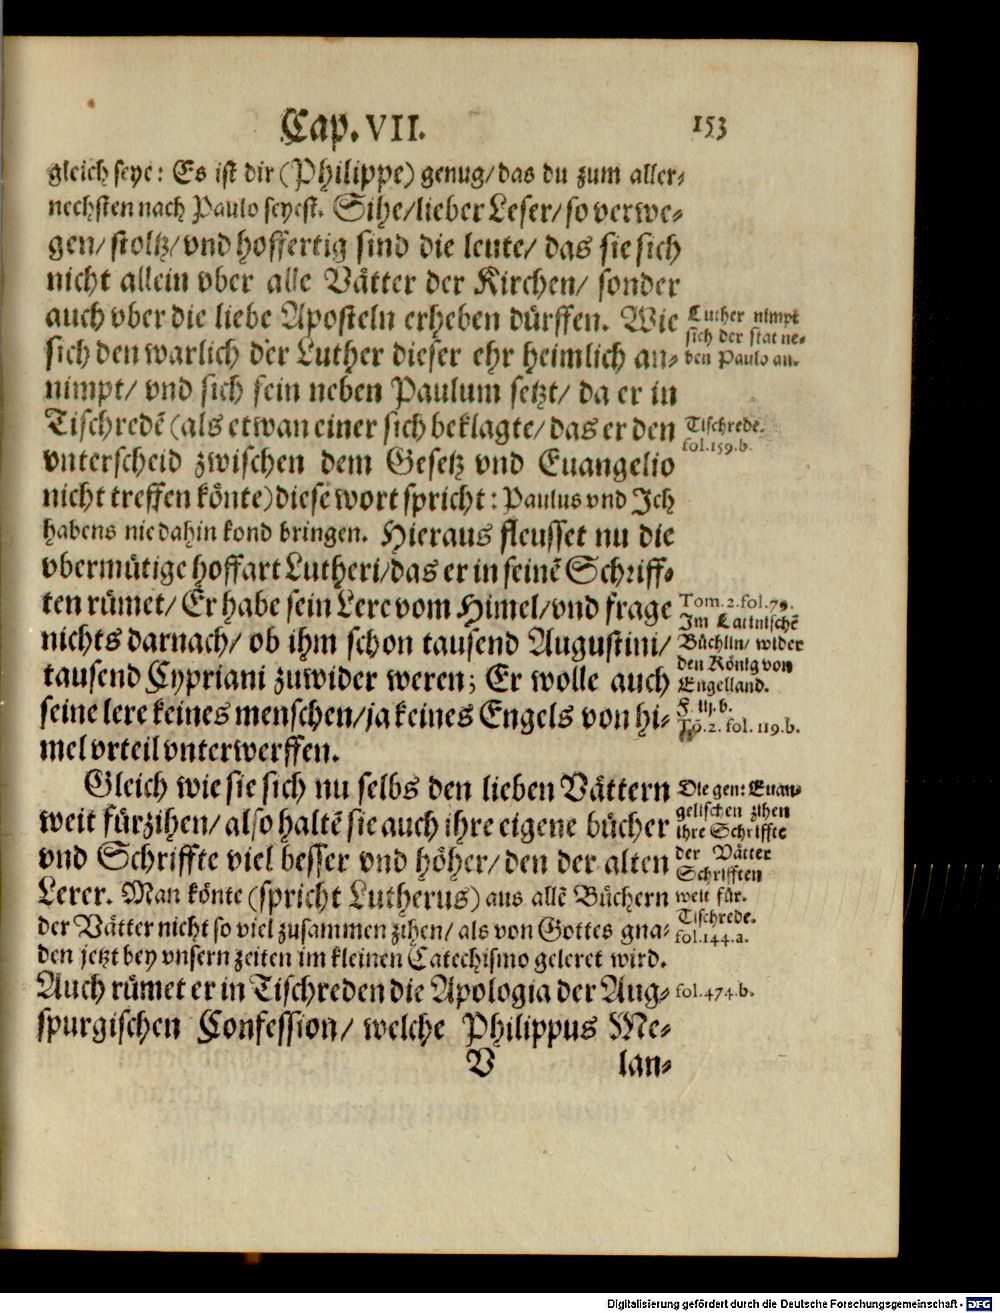 Cap. VII. 153
gleich seye: Es ist dir (Philippe) genug/ das du zum aller⸗
nechsten nach Paulo seyest. Sihe/ lieber Leser/ so verwe⸗
gen/ stoltz/ vnd hoffertig sind die leute/ das sie sich
nicht allein vber alle Vätter der Kirchen/ sonder
auch vber die liebe Aposteln erheben dürffen. Wie
sich den warlich der Luther dieser ehr heimlich an⸗
nimpt/ vnd sich sein neben Paulum setzt/ da er in
Tischredẽ (als etwan einer sich beklagte/ das er den
vnterscheid zwischen dem Gesetz vnd Euangelio
nicht treffen könte) diese wort spricht: Paulus vnd Ich
habens nie dahin kond bringen. Hieraus fleusset nu die
vbermütige hoffart Lutheri/ das er in seinẽ Schriff⸗
ten rümet/ Er habe sein Lere vom Himel/ vnd frage
nichts darnach/ ob ihm schon tausend Augustini/
tausend Cypriani zuwider weren; Er wolle auch
seine lere keines menschen/ ja keines Engels von hi⸗
mel vrteil vnterwerffen.
Gleich wie sie sich nu selbs den lieben Vättern
weit fürzihen/ also haltẽ sie auch ihre eigene bücher
vnd Schriffte viel besser vnd höher/ den der alten
Lerer. Man könte (spricht Lutherus) aus allẽ Büchern
der Vätter nicht so viel zusammen zihen/ als von Gottes gna⸗
den jetzt bey vnsern zeiten im kleinen Catechismo geleret wird.
Auch rümet er in Tischreden die Apologia der Aug⸗
spurgischen Confession/ welche Philippus Me⸗
V lan⸗
Luther nimpt
sich der stat ne⸗
ben Paulo an.
Tischrede.
fol. 159. b.
Tom. 2. fol. 79.
Im Latinischẽ
Büchlin/ wider
den König von
Engelland.
F. iij. b.
Tõ. 2. fol. 119. b.
Die gen: Euan⸗
gelischen zihen
ihre Schriffte
der Vätter
Schrifften
weit für.
Tischrede.
fol. 144. a.
fol. 474. b.
Digitalisierung gefördert durch die Deutsche Forschungsgemeinschaft - DFG